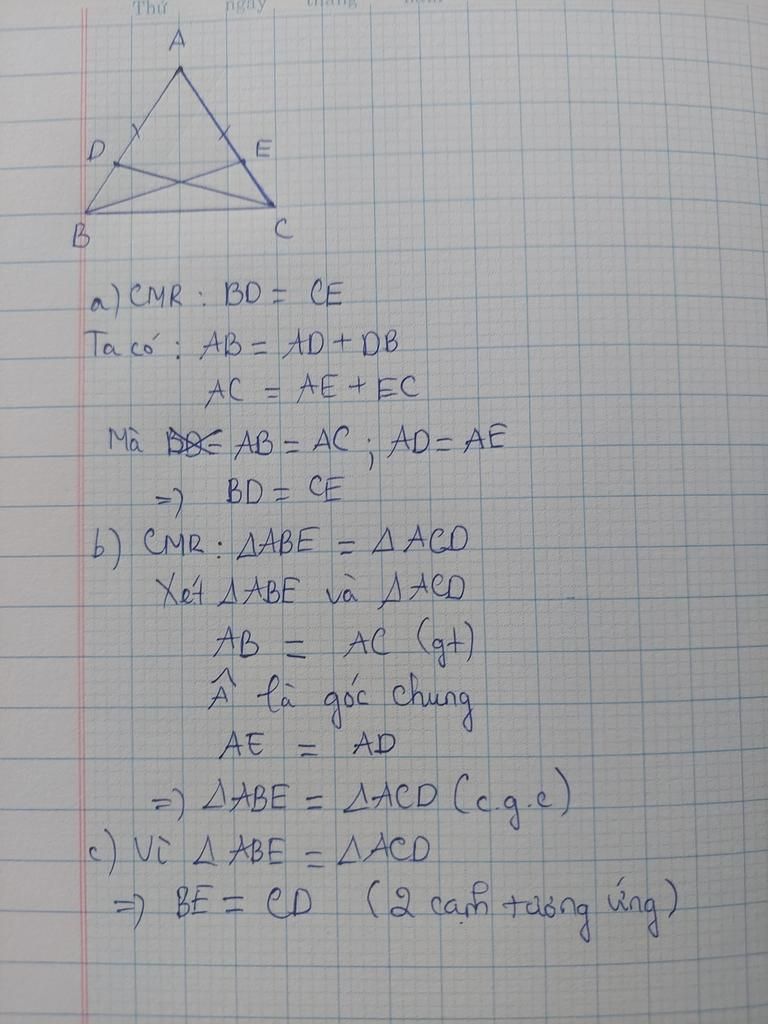 Thứ ngày tháng năm
A
D E
B C
a) CMR : BD = CE
Ta có : AB = AD + DB
AC = AE + EC
Mà AB = AC ; AD = AE
=> BD = CE
b) CMR : ΔABE = ΔACD
Xét ΔABE và ΔACD
AB = AC (gt)
Â là góc chung
AE = AD
=> ΔABE = ΔACD (c.g.c)
c) Vì ΔABE = ΔACD
=> BE = CD (2 cạnh tương ứng)